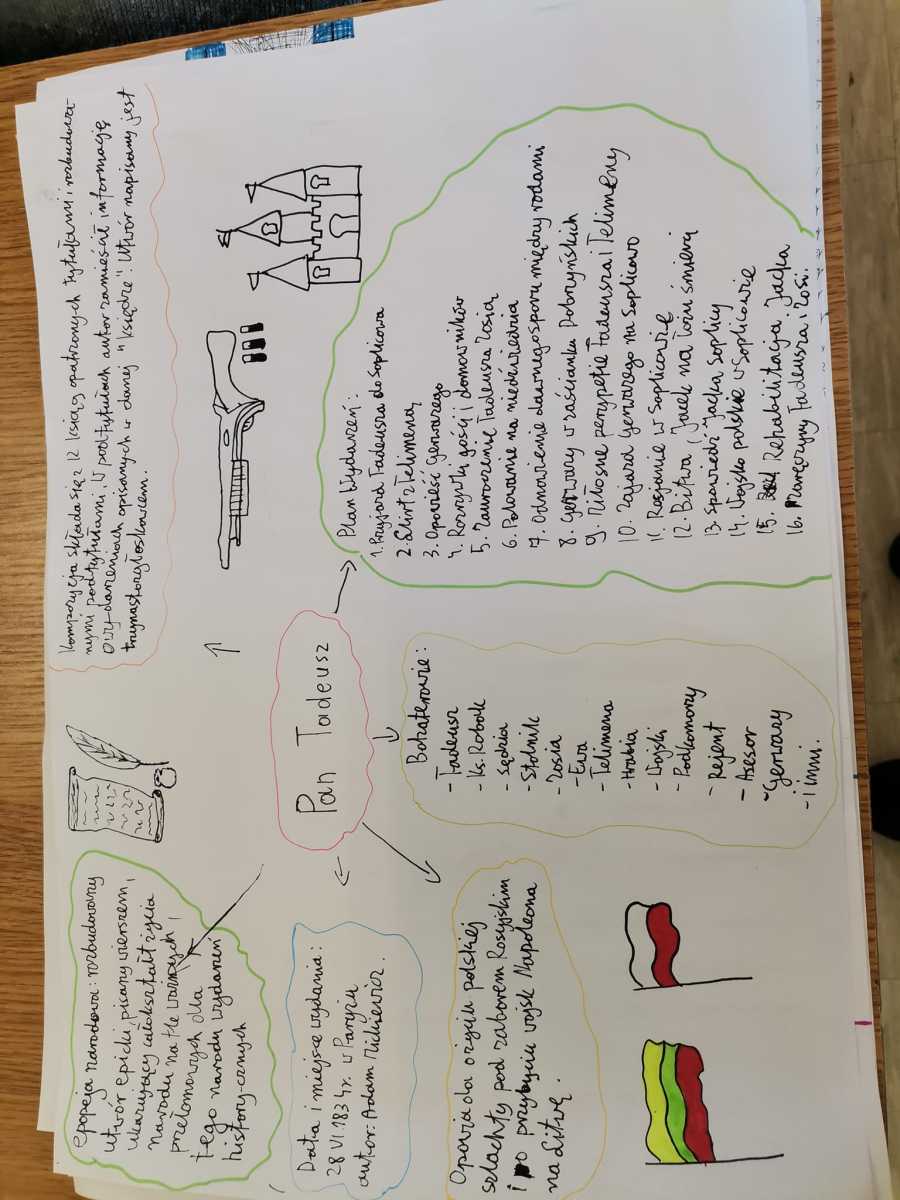 Pan Tadeusz
epopeja narodowa: rozbudowany
utwór epicki pisany wierszem,
ukazujący całokształt życia
narodu na tle ważnych,
przełomowych dla
tego narodu wydarzeń
historycznych
Kompozycja składa się z 12 ksiąg opatrzonych tytułami i rozbudowa-
nymi podtytułami. W podtytułach autor zamieścił informację
o wydarzeniach opisanych w danej "księdze". Utwór napisany jest
trzynastozgłoskowcem.
Data i miejsce wydania:
28 VI 1834r. w Paryżu
autor: Adam Mickiewicz.
Opowiada o życiu polskiej
szlachty pod zaborem Rosyjskim
i po przybyciu wojsk Napoleona
na Litwę.
Bohaterowie:
- Tadeusz
- Ks. Robak
- Sędzia
- Stolnik
- Zosia
- Ewa
- Telimena
- Hrabia
- Wojski
- Podkomorzy
- Rejent
- Asesor
- Gerwazy
- i inni.
Plan Wydarzeń:
1. Przyjazd Tadeusza do Soplicowa
2. Flirt z Telimeną
3. Opowieść Gerwazego
4. Rozrywki gości i domowników
5. Zauroczenie Tadeusza Zosią
6. Polowanie na niedźwiedzia
7. Odnowienie dawnego sporu między rodami
8. Gerwazy w zaścianku Dobrzyńskich
9. Miłosne perypetie Tadeusza i Telimeny
10. Zajazd Gerwazego na Soplicowo
11. Rosjanie w Soplicowie
12. Bitwa, Jacek na łożu śmierci
13. Spowiedź Jacka Soplicy
14. Wojsko polskie w Soplicowie
15. Rehabilitacja Jacka
16. Zaręczyny Tadeusza i Zosi.